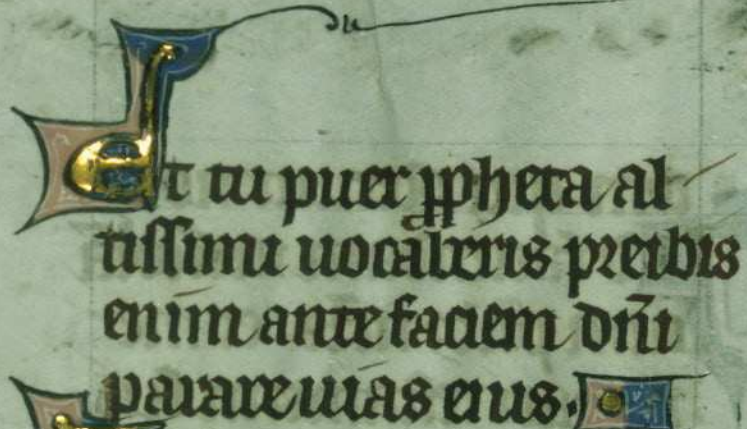 Et tu puer ꝓpheta al
tissimi uocaberis preibis
enim ante faciem dn̄i
parare uias eius.